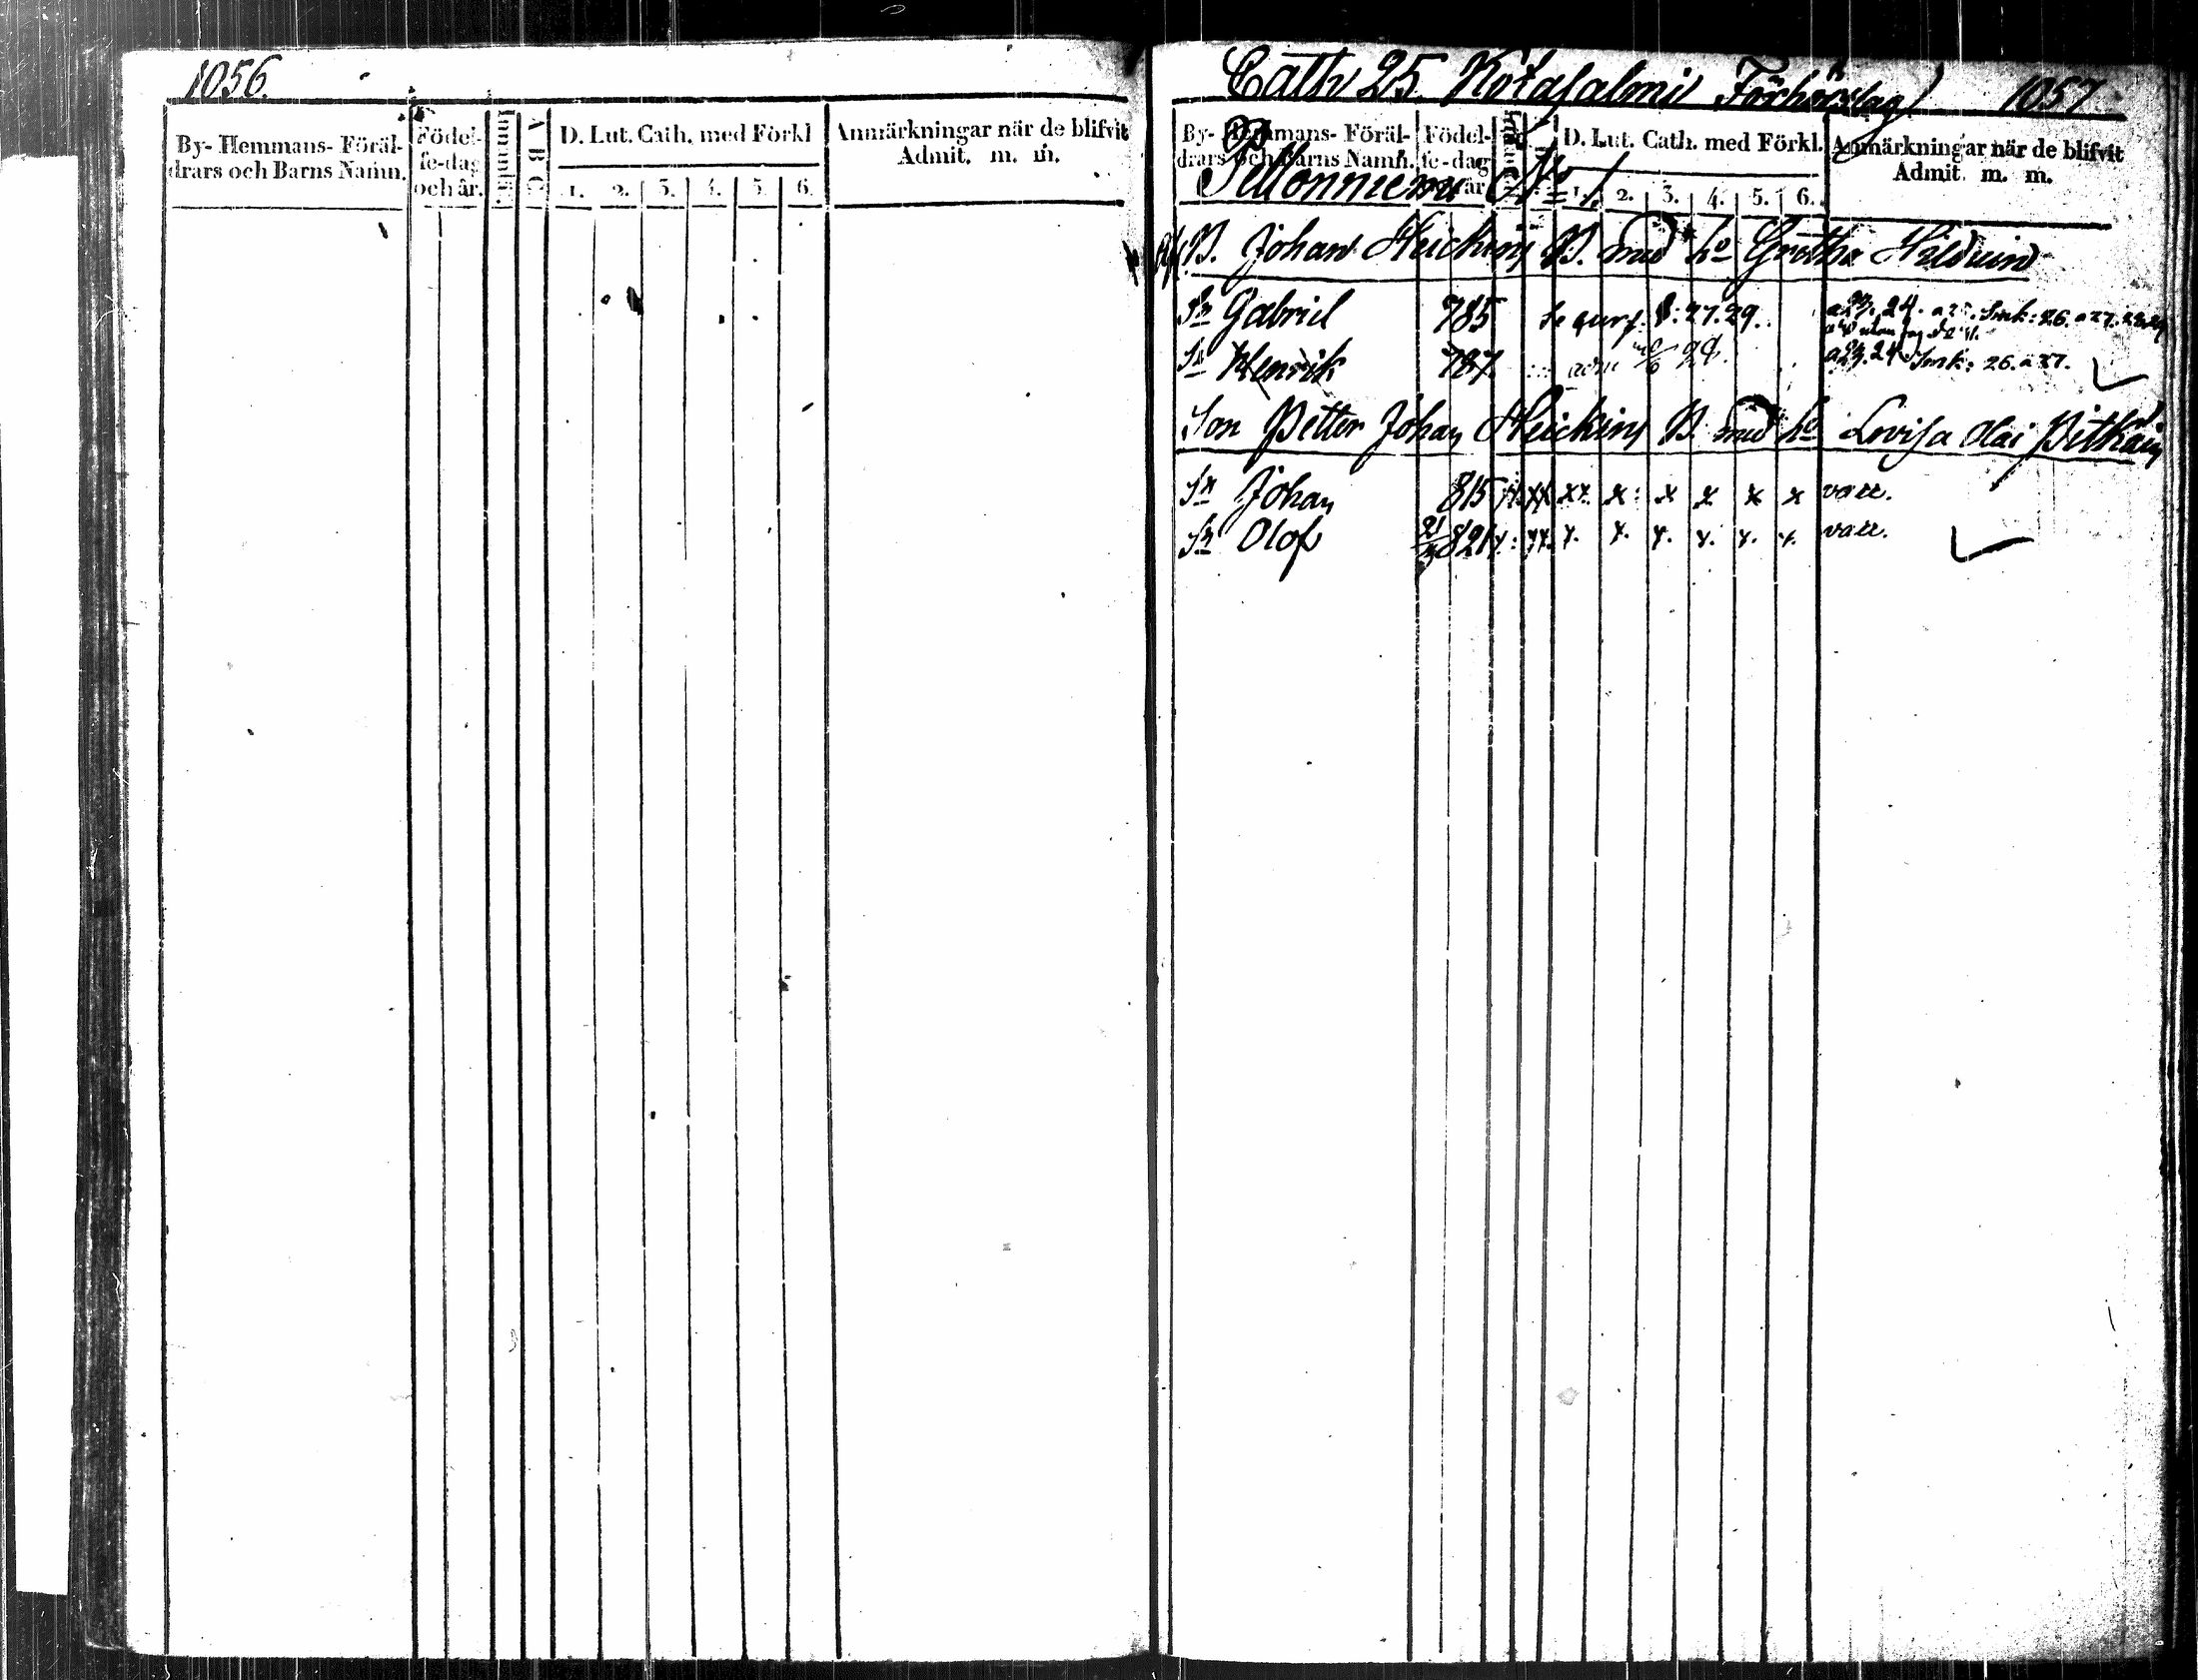 1056.
By- Hemmans- Föräl-
drars och Barns Namn.
Födel-
se-dag
och år.
Innanläs.
A B C
D. Lut. Cath. med Förkl
1. 2. 3. 4. 5. 6.
Anmärkningar när de blifvit
Admit. m. m.
Cath 25 Kotasalmi Förhörslag 1057
By- Hemmans- Föräl-
drars och Barns Namn.
Födel-
se-dag
år
D. Lut. Cath. med Förkl.
1. 2. 3. 4. 5. 6.
Anmärkningar när de blifvit
Admit. m. m.
Pellonniemi No 1.
B. Johan Heickin B. med ho Gretha
Sn Gabriel 785 27.29. a23. 24. a25. Smk: 26. a27.
Sn Henrik 787. a23. 24. Smk: 26. a27.
Son Petter Johan Heickin B. med ho Lovisa Olai Pitkäin
Sn Johan 815 x. xx xx. x: x x x x vacc.
Sn Olof 821 x: xx. x. x. x. x. x. x. vacc.